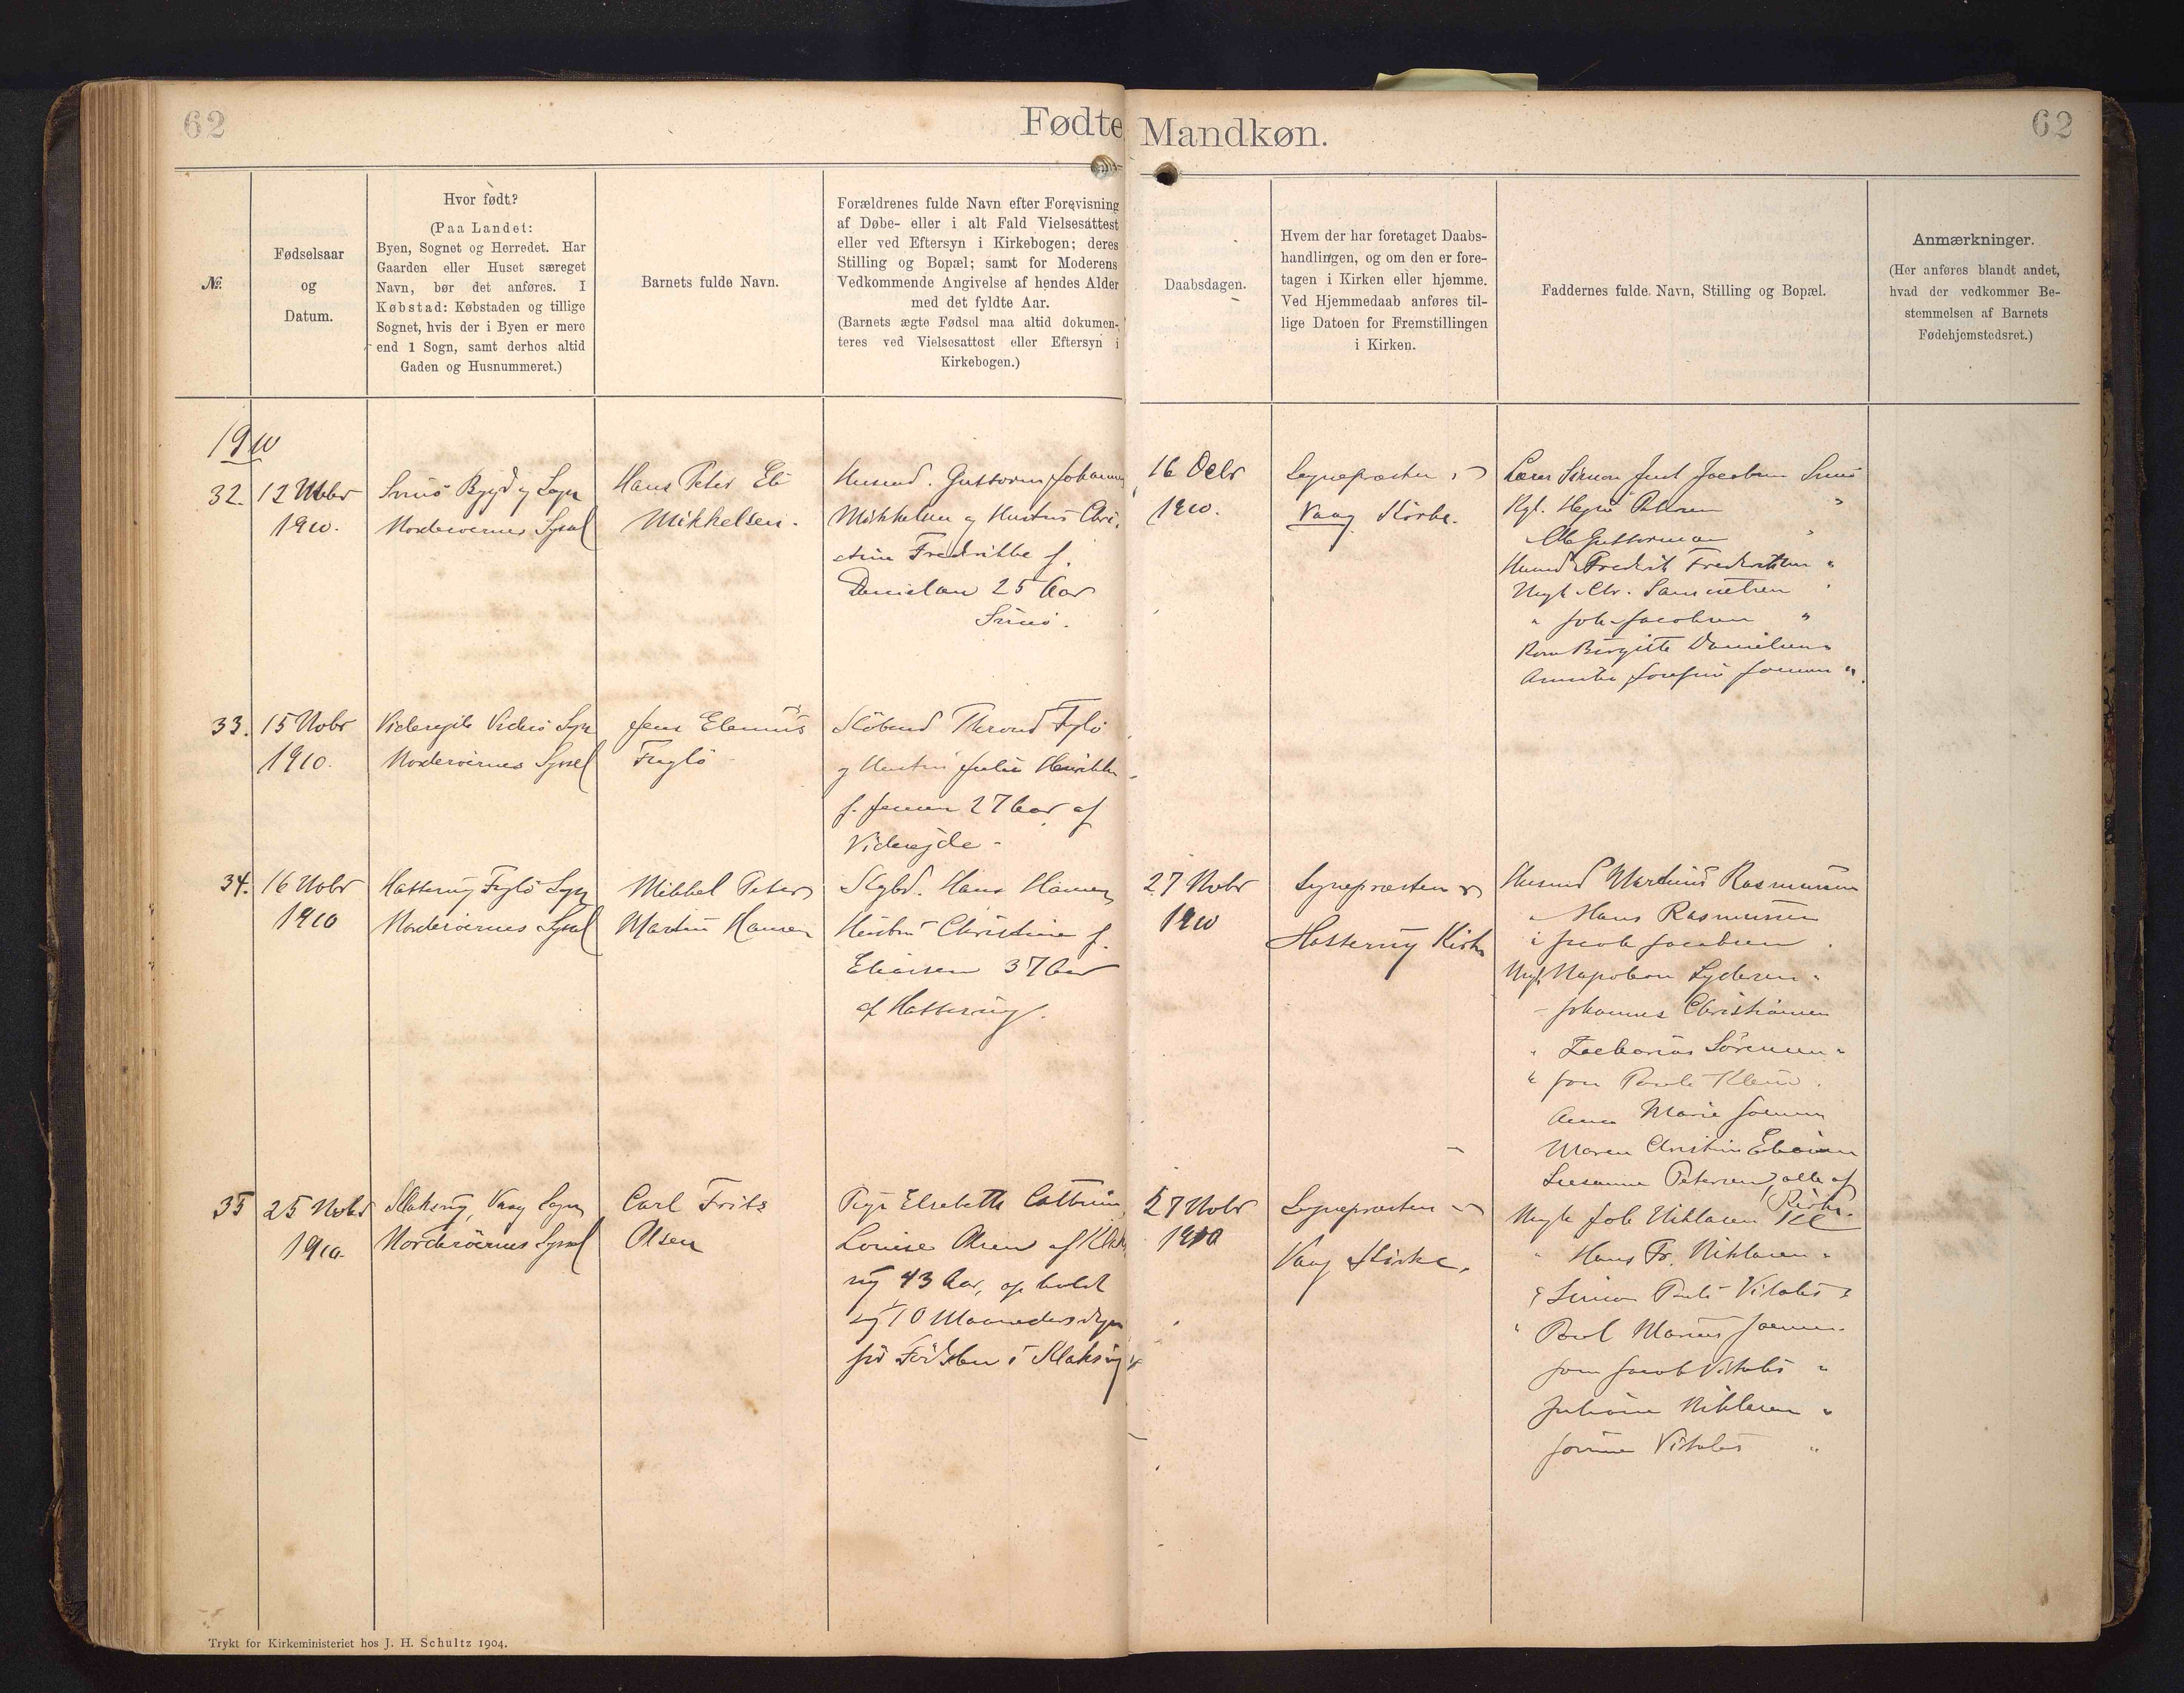 62
Fødte
Mandkøn.
62
№
Fødselsaar
og
Datum.
Hvor født?
(Paa Landet:
Byen, Sognet og Herredet. Har
Gaarden eller Huset særeget
Navn, bør det anføres. I
Købstad: Købstaden og tillige
Sognet, hvis der i Byen er mere
end 1 Sogn, samt derhos altid
Gaden og Husnummeret.)
Barnets fulde Navn.
Forældrenes fulde Navn efter Forevisning
af Døbe- eller i alt Fald Vielsesattest
eller ved Eftersyn i Kirkebogen; deres
Stilling og Bopæl; samt for Moderens
Vedkommende Angivelse af hendes Alder
med det fyldte Aar.
(Barnets ægte Fødsel maa altid dokumen-
teres ved Vielsesattest eller Eftersyn i
Kirkebogen.)
Daabsdagen.
Hvem der har foretaget Daabs-
handlingen, og om den er fore-
tagen i Kirken eller hjemme.
Ved Hjemmedaab anføres til-
lige Datoen for Fremstillingen
i Kirken.
Faddernes fulde Navn, Stilling og Bopæl.
Anmærkninger.
(Her anføres blandt andet,
hvad der vedkommer Be-
stemmelsen af Barnets
Fødehjemstedsret.)
1910
32.
12
1910.
Svinø Bygd og Sogn
Norderøernes Syssel
Hans Peter Eli
Mikkelsen.
Husmd. Guttorm Johannes
Mikkelsen og Hustru Chri-
stine Fredrikke f.
Danielsen 25 Aar
Svinø.
16
1910.
Sognepræsten i
Vaag Kirke.
Lærer Simon Jacobsen Svinø
Petersen "
Ole Guttormsen "
Husmd Fredrik Frederiksen "
Ungk. Chr. Samuelsen "
" Joh. Jacobsen "
Birgitte Danielsen
Josefine Joensen "
33.
15 Nobr
1910.
Viderejde Viderø Sogn
Norderøernes Syssel
Jens Elenus
Fuglø
Thrond Fuglø
og Hustru Julie Henrikke
f. Jensen 27 Aar af
Viderejde
34.
16 Nobr
1910
Hattervig Fuglø Sogn
Norderøernes Syssel
Mikkel Peter
Martin Hansen
Hans Hansen
Hustru Christine f.
Eliassen 37 Aar
af Hattervig.
27 Nobr
1910
Sognepræsten i
Hattervig Kirke
Husmd Martinus Rasmussen
" Hans Rasmussen
" Jacob Jacobsen
Ungk. Napoleon Lydersen "
" Johannes Christiansen
" Zacharias Sørensen "
" Jon Pauli Klein
Anna Marie Joensen
Maren Christine Eliasen
Susanne Petersen, alle af
Kirke.
35
25 Nobr
1910.
Klaksvig, Vaag Sogn
Norderøernes Syssel
Carl Frits
Olsen
Pige Elsebeth Cathrine
Louise Olsen af Klaks
vig 43 Aar, opholdt
sig 10 Maanedersdagen
før Fødslen i Klaksvig
27 Nobr
1910
Sognepræsten i
Vaag Kirke.
Ungk Job Niklasen
" Hans Fr. Niklasen "
" Simon Pauli Vitalis "
" Poul Marius Joensen
Jacob Vitalis "
Juliane Niklasen "
Vitalis "
Trykt for Kirkeministeriet hos J. H. Schultz 1904.